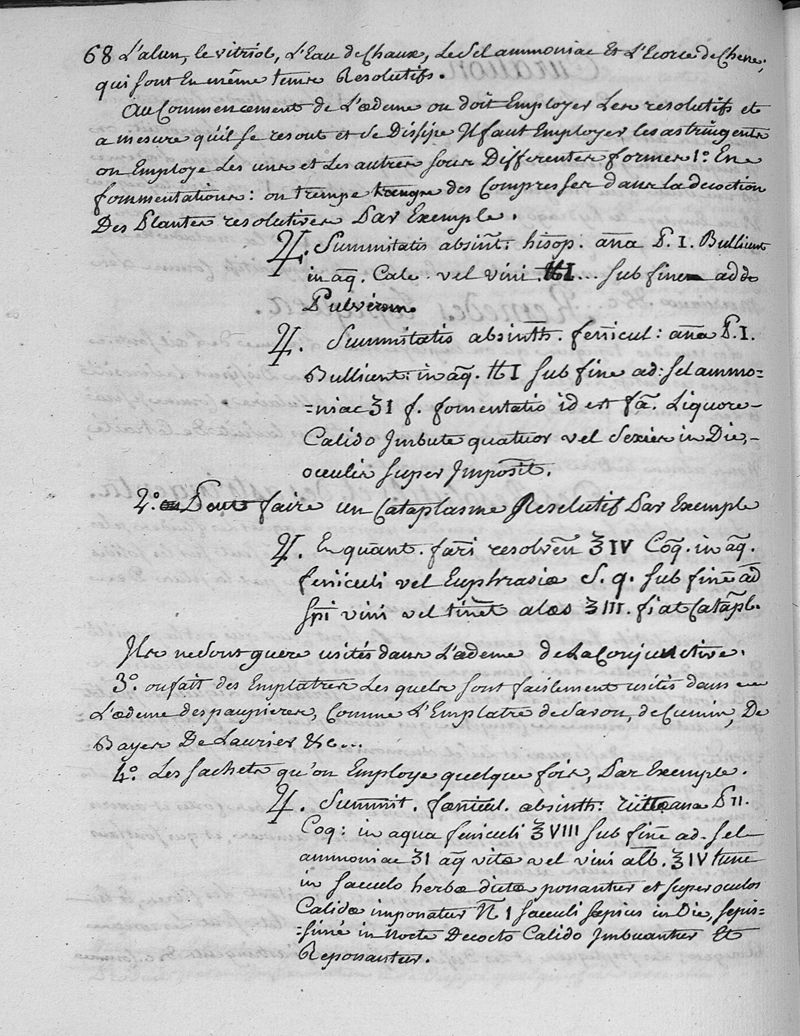 68 L'alun, le vitriol, L'Eau de Chaux, Le Sel ammoniac Et L'Ecorce de Chene,
qui sont En même tems Resolutifs.
Au Commencement de L'ædeme on doit Employer Les resolutifs et
a mesure qu'il se resout et se Dissipe Il faut Employer les astringents
on Employe Les uns et Les autres sous Differentes formes 1º. En
fommentations: on trempe des Compresses dans la decoction
Des Plantes resolutives Par Exemple.
♃. Summitatis absint: hisop. ana P. I. Bulliant
in aq. Calc. vel vini ℔ I... sub fine adde
Pulverum
♃. Summitatis absinth. fenicul: ana P. I.
Bulliant: in aq. ℔ I sub fine ad: sel ammo=
=niac ʒI f. fomentatio id est fa. Liquore
Calido Imbute quatuor vel Sexies in Die,
oculis super Imposit.
2º. Pour faire un Cataplasme Resolutif Par Exemple
♃. En quant. fari resolven ℥ IV Coq. in aq.
feniculi vel Euphrasiæ S. q. sub fine ad
spi vini vel tinct aloes ℥ III. fiat Catapl.
Ils ne sont guere usités dans L'ædeme de La Conjunctive.
3º. on fait des Emplatres Les quels sont facilement usités dans
L'ædeme des paupieres, Comme L'Emplatre de Savon, de Cumin, De
Bayes De Laurier &c...
4º. Les sachets qu'on Employe quelque fois, Par Exemple.
♃. Summit. fænicul. absinth: ana P II.
Coq: in aqua feniculi ℥ VIII sub fine ad. sel
ammoniac ʒI aq vitæ vel vini alb. ℥ IV tunc
in sacculo herbæ dictæ ponantur et super oculos
Calidæ imponatur Nº 1 sacculi sæpius in Die, sepis=
=simé in Nocte Decocto Calido Imbuantur Et
Reponantur.